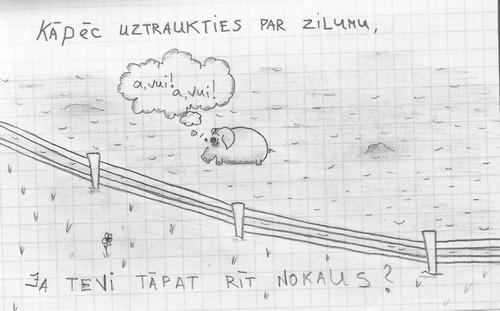 KĀPĒC UZTRAUKTIES PAR ZILUMU,
a,vui!
a,vui!
JA TEVI TĀPAT RĪT NOKAUS?